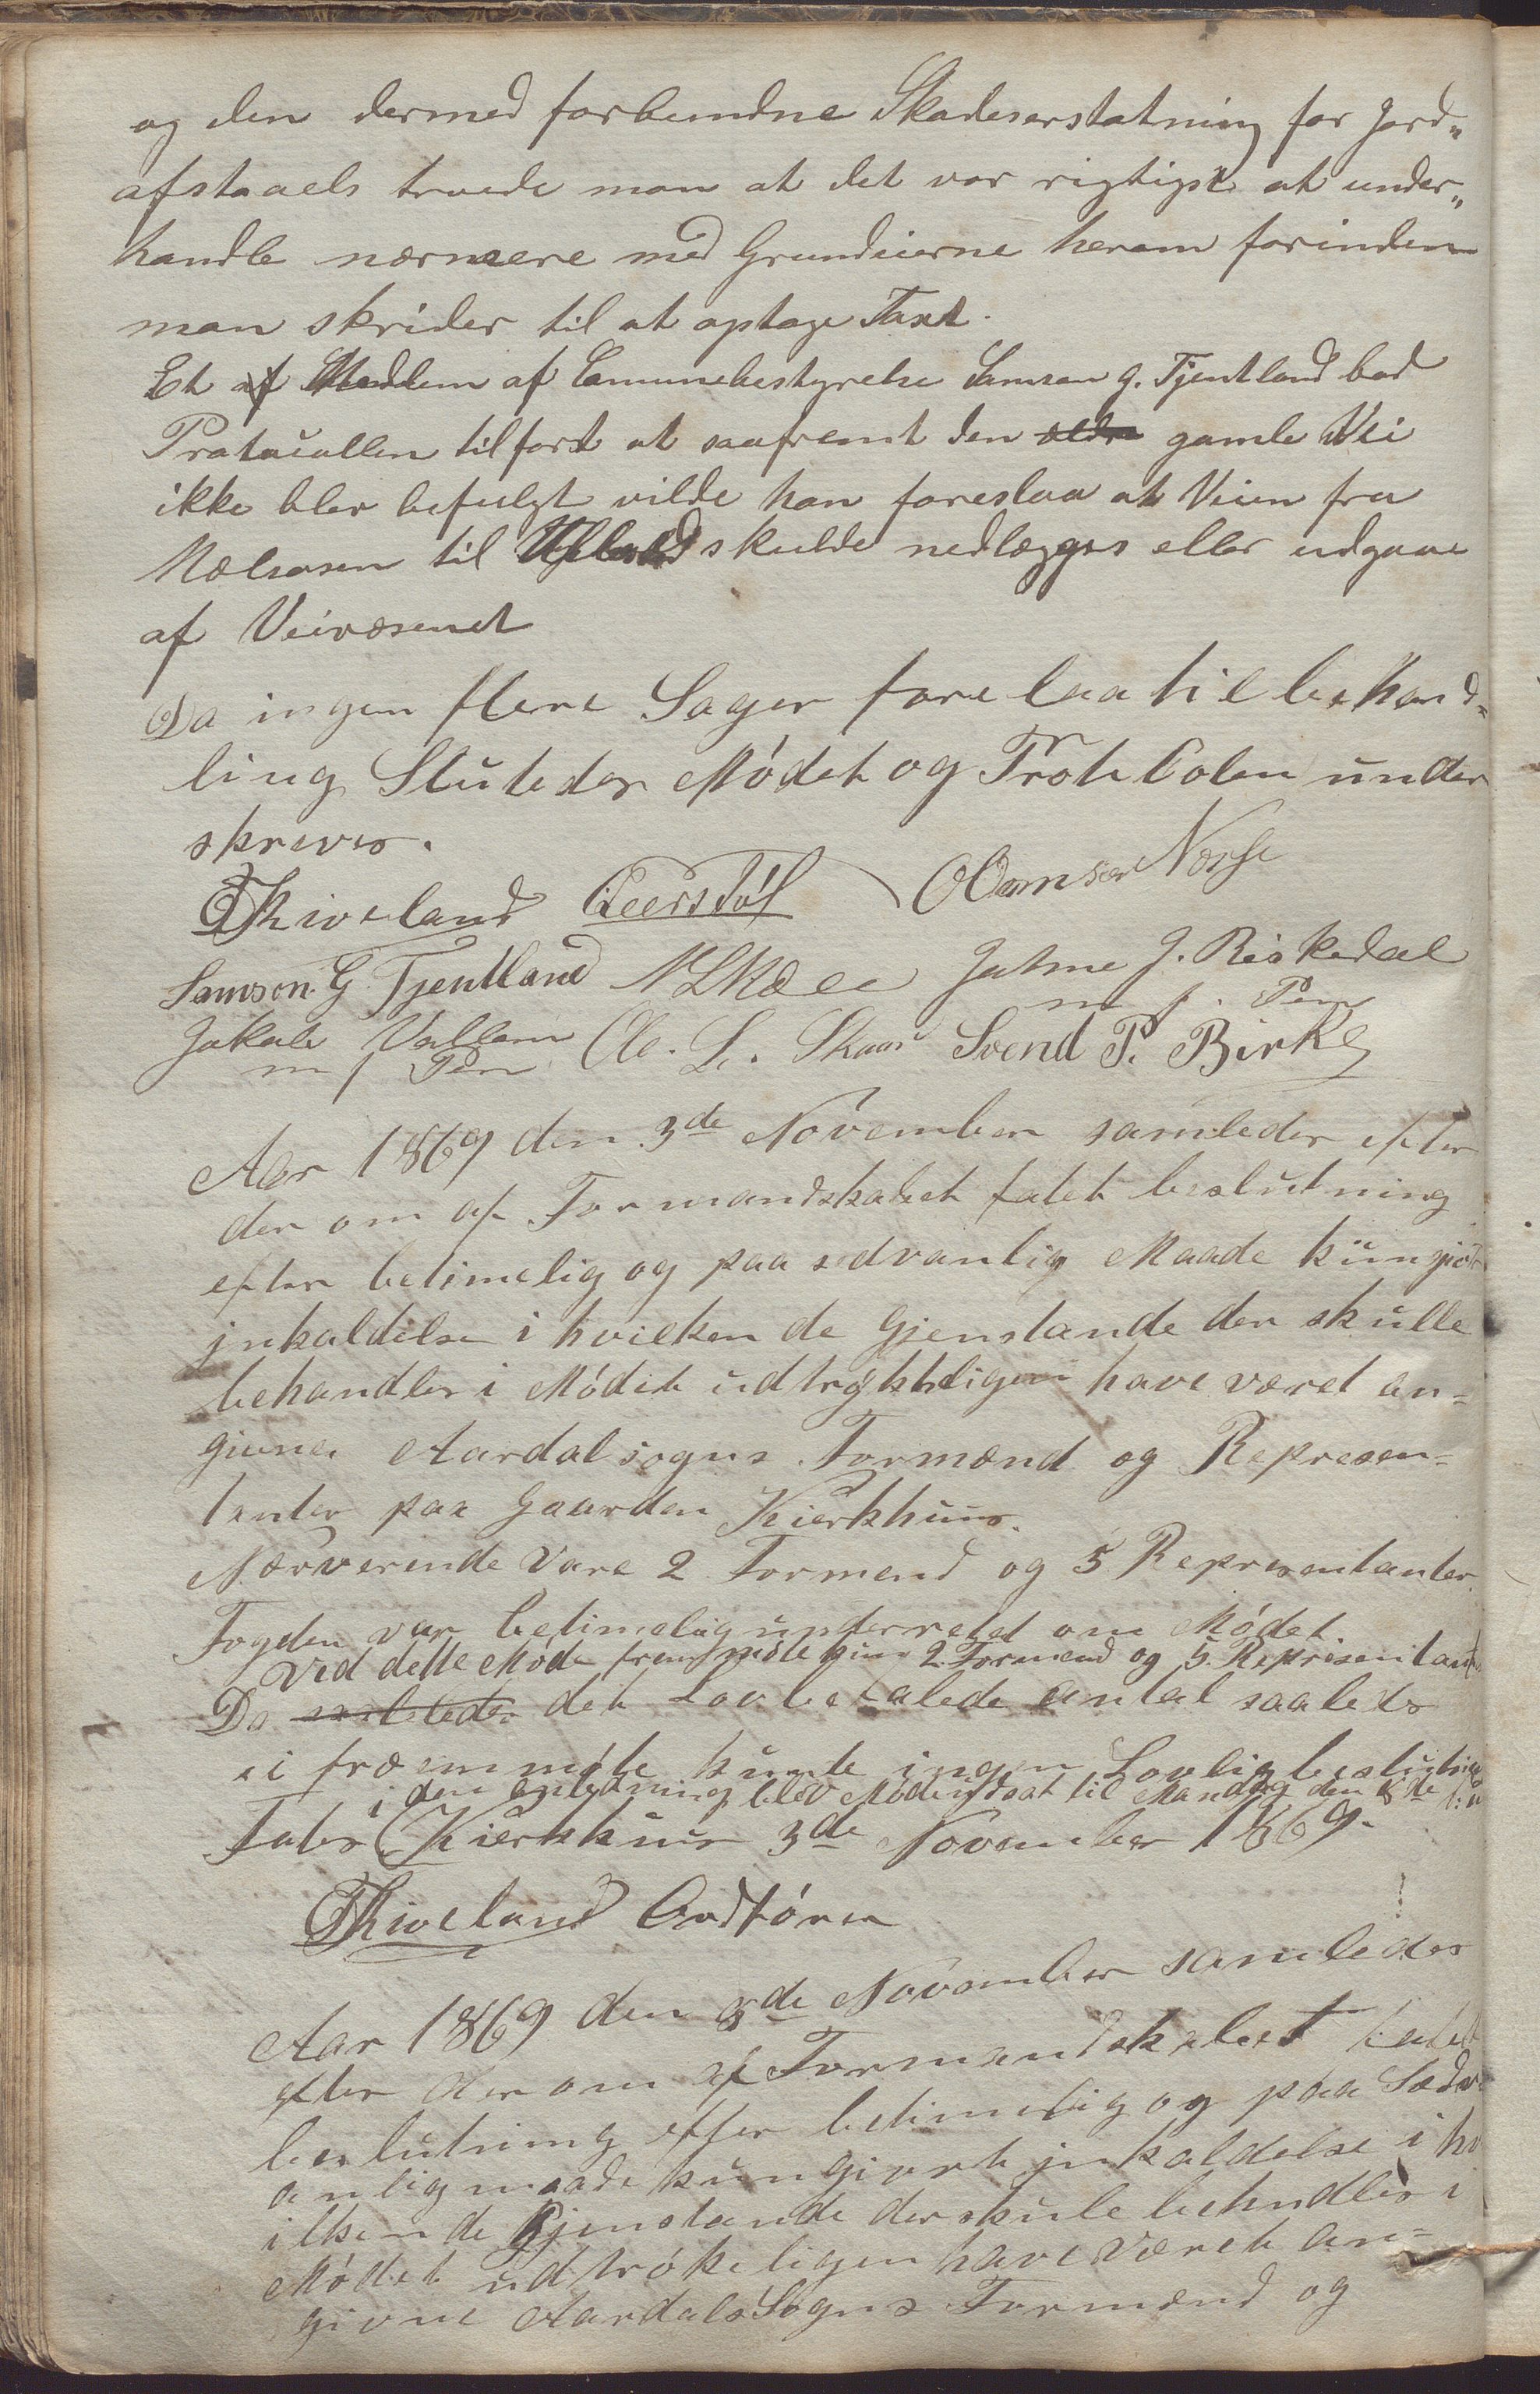 og den dermed forbundne Skadeserstatning for Jord„
afstaaels troede man at det var rigtigst at under„
handle nærmere med Grundeierne herom forinden
man skrider til at optage Taxt.
Et af Medlem af Comunebestyrelse Samson G. Tjentland bad
Protocollen tilført at saafremt den ældre gamle Vei
ikke blev befulgt vilde han foreslaa at Veien fra
Mælsosen til skulde nedlægges eller udgaae
af Veivæsenet
Da ingen flere Sager fore laa til behand=
ling Slutedes Mödet og Protocolen under
skreves.
Thiveland Geersdöl OOmnsen Norse
Samson. G. Tjentland Jatme J. Riskedal
m f. Pen
Jakob Vallem Ole. L. Skaar Svend P. Birke
m f Pen
Aar 1869 den 3de November samledes efter
der om af Formandskabet fatet beslutning
efter betimelig og paa sedvanlig Maade kungjort
jnkaldelse i hvilken de Gjenstande der skulle
behandles i Mödet udtrykkeligen have været an=
givne Aardalsogns Formænd og Represen=
tanter paa Gaarden Kierkhuus.
Nærverende Vare 2 Formend og 5 Representanter.
Fogden var betimelig underretet om Mödet.
Ved dette Möde fremmöte kun 2 Formend og 5. Representant
Da saaledes det Lovbefalede antal saaledes
ei fræmmöte kunde ingen Lovlig beslutning
i den anledning blev Mödet udsat til Mandag den 8de
Fates (Kierkhuus 3de November 1869.
Thiveland Ordförer
Aar 1869 den 8de November samledes
efter der om af Formandskabet fatet
beslutning efter betimelig og paa Sædv
anlig maade kungiort jnkaldelse i hv
ilken de Gjenstande der skule behandles i
Mödet udtrökeligen have Været an=
givne Aardals Sogns Formænd og